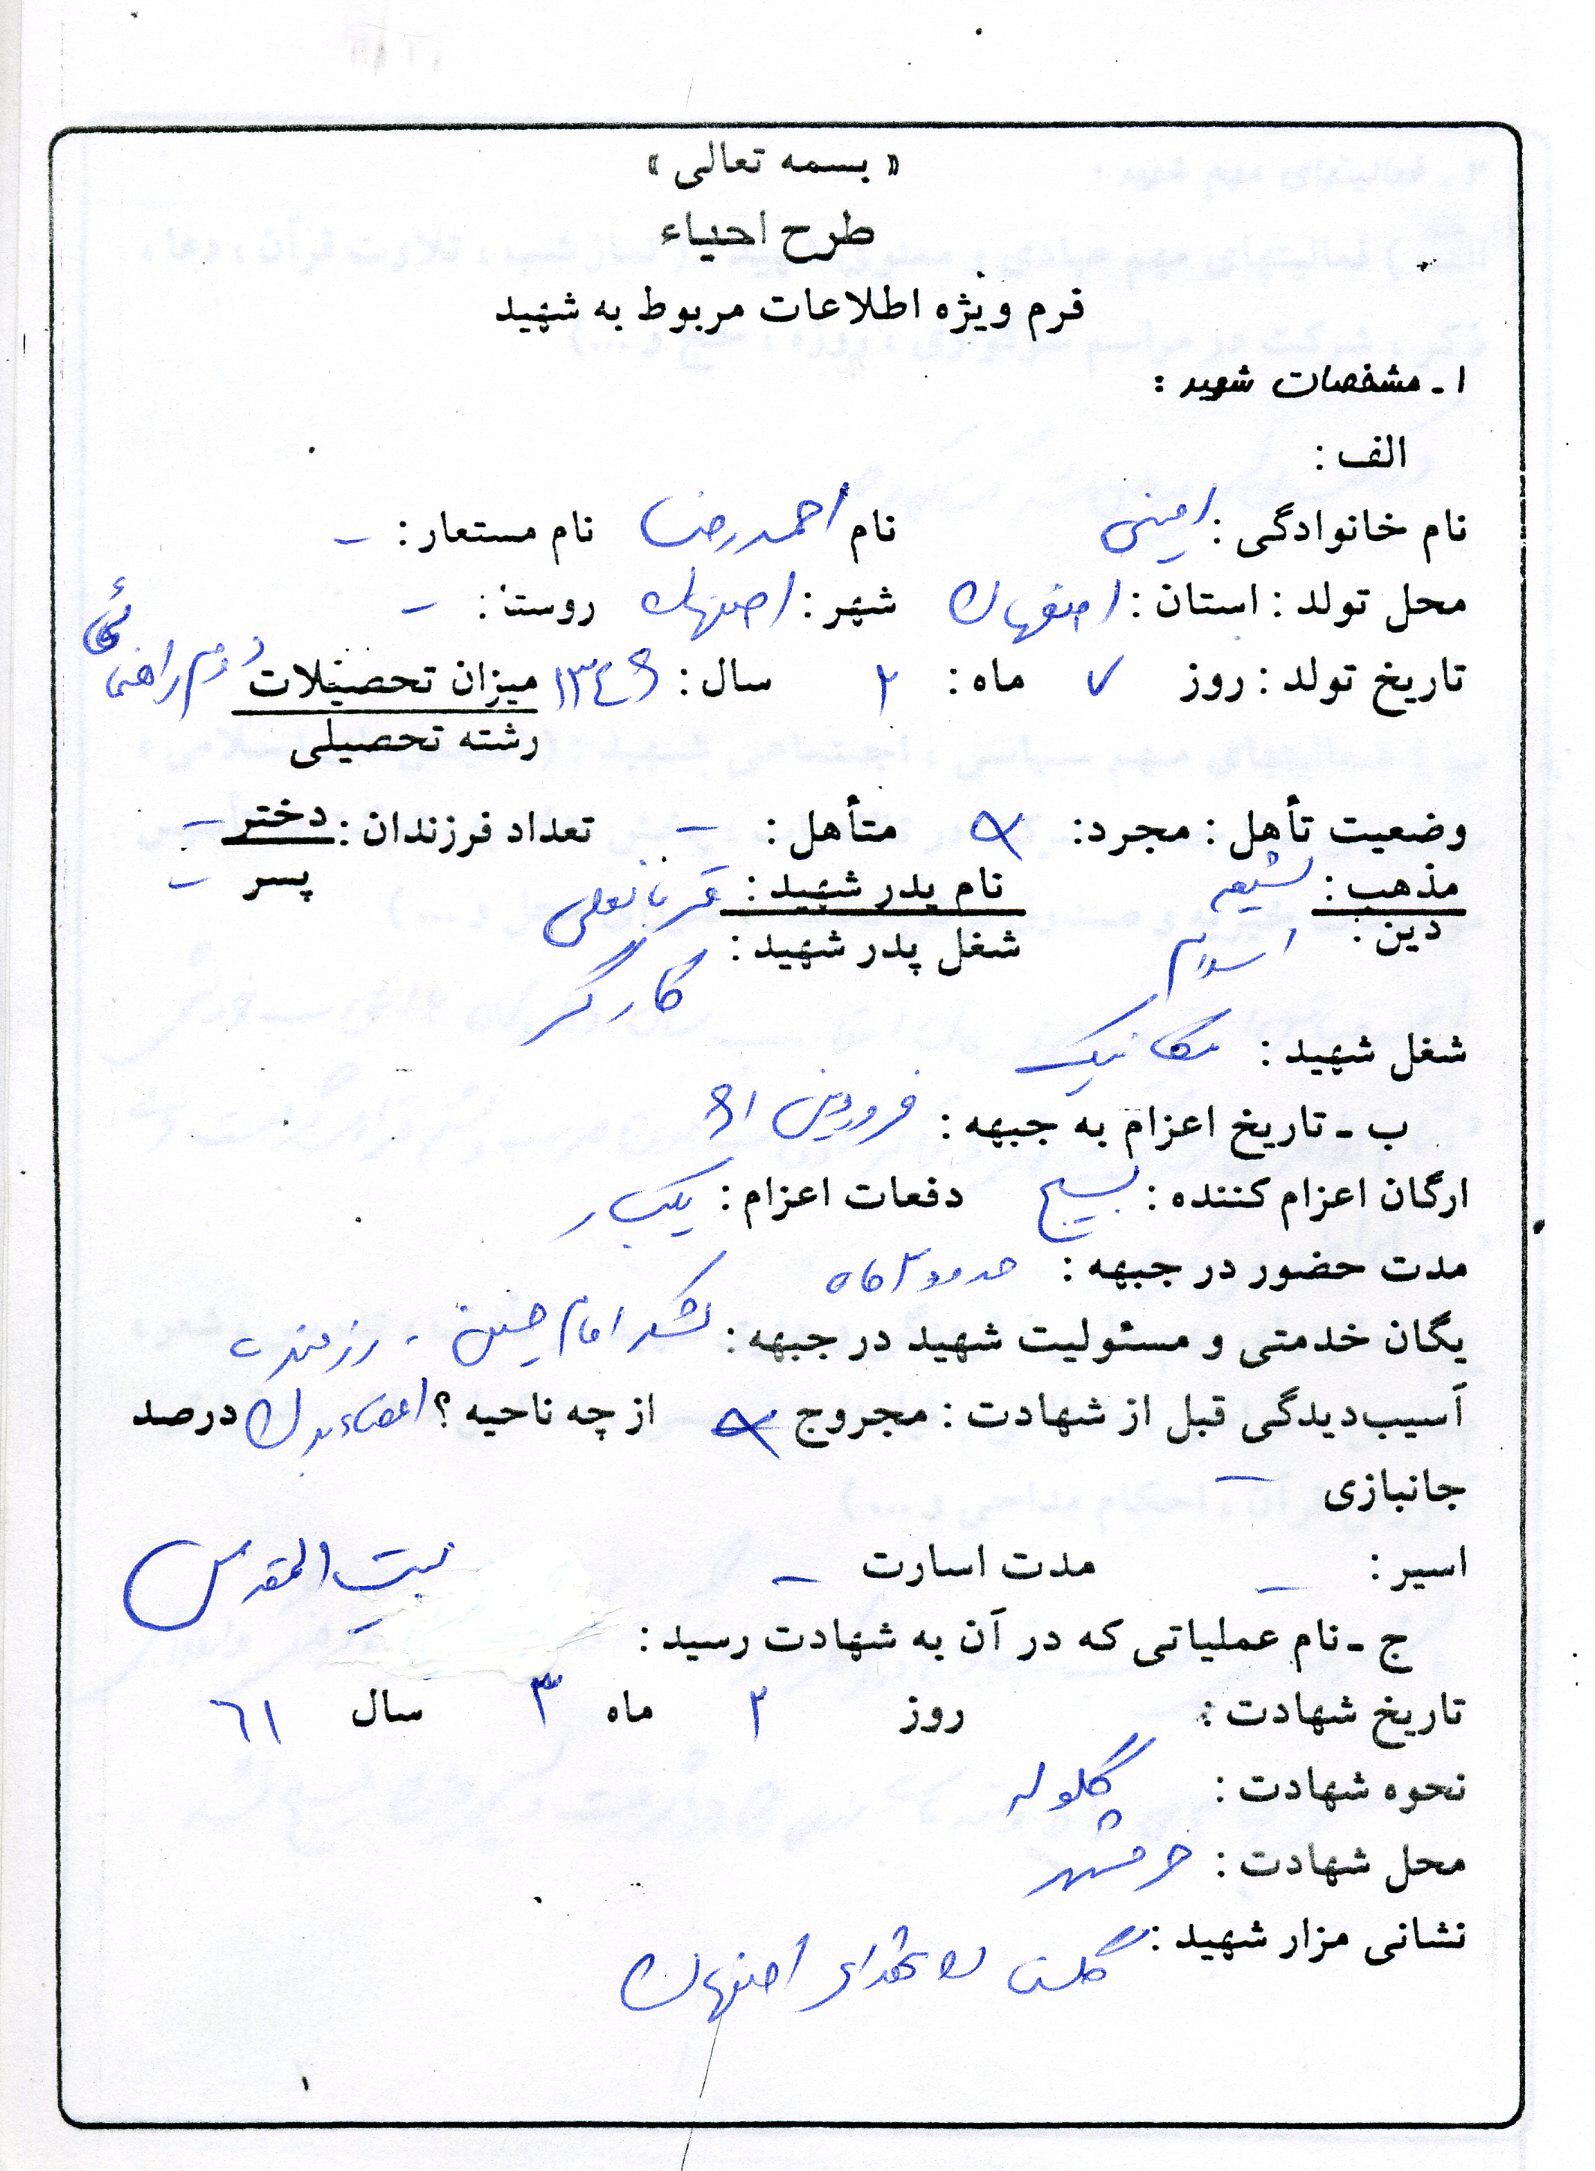 « بسمه تعالی »
طرح احیاء
فرم ویژه اطلاعات مربوط به شهید
۱ ـ مشخصات شهید :
الف :
نام خانوادگی : امینی نام احمدرضا نام مستعار : -
محل تولد : استان : اصفهان شهر : اصفهان روستا : -
تاریخ تولد : روز ۷ ماه : ۲ سال : ۱۳۴۶ میزان تحصیلات دوم راهنمائی
رشته تحصیلی
وضعیت تأهل : مجرد : متأهل : - تعداد فرزندان : دختر -
مذهب : شیعه نام پدر شهید : قربانعلی پسر -
دین : اسلام شغل پدر شهید : کارگر
شغل شهید : مکانیک
ب ـ تاریخ اعزام به جبهه : فروردین ۶۱
ارگان اعزام کننده : بسیج دفعات اعزام : یکبار
مدت حضور در جبهه : حدود ۲ ماه
یگان خدمتی و مسئولیت شهید در جبهه : لشکر امام حسین - رزمنده
آسیب‌دیدگی قبل از شهادت : مجروح از چه ناحیه ؟ اعضاء بدن درصد
جانبازی -
اسیر : - مدت اسارت -
ج ـ نام عملیاتی که در آن به شهادت رسید : بیت المقدس
تاریخ شهادت : روز ۲ ماه ۳ سال ۶۱
نحوه شهادت : گلوله
محل شهادت : خرمشهر
نشانی مزار شهید : گلستان شهدای اصفهان
۱